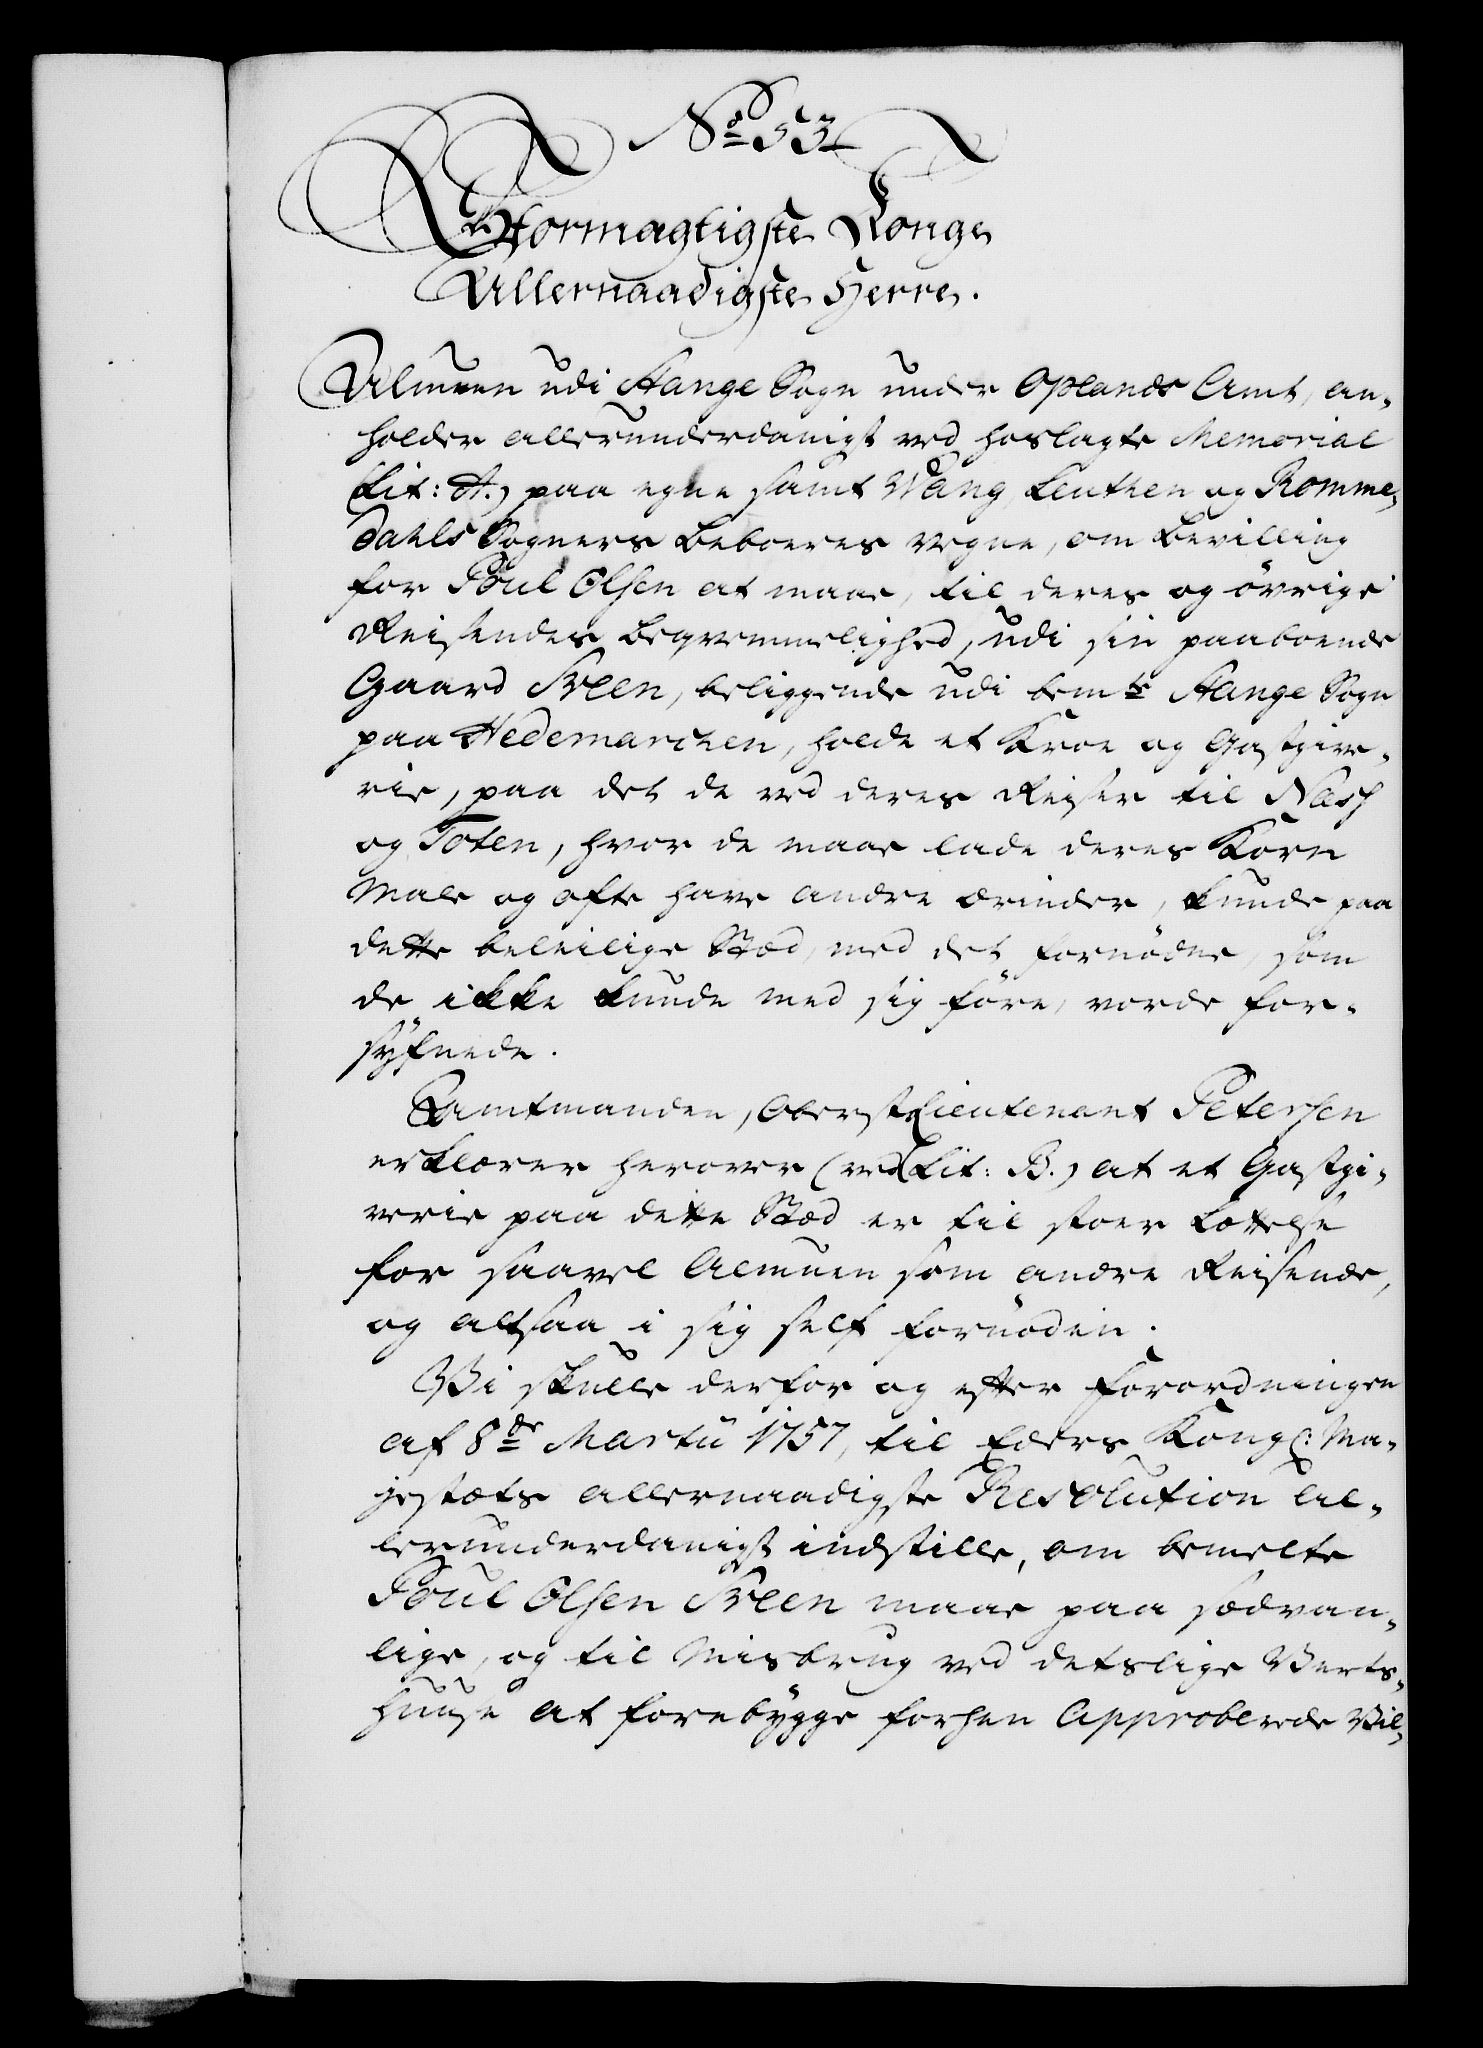 No 53
Stormægtigste Konge
Allernaadigste Herre.
Almuen udi Stange Sogn under Oplands Amt, an-
holder allerunderdanigst ved hoslagte Memorial
(Lit: A.) paa egne samt Wang, Leuthen og Romme-
dahls Sogners Beboeres vegne, om Bevilling
for Poul Olsen at maae, til deres og övrige
Reisendes Beqvemmelighed, udi sin paaboende
Gaard Steen, beliggende udi bemte Stange Sogn
paa Hedemarchen, holde et Kroe og Gæstgive-
rie, paa det de ved deres Reiser til Næss
og Toten, hvor de maae lade deres Korn
Male og ofte have andre ærinder, kunde paa
dette beleilige Stæd, med det fornödne, som
de ikke kunde med sig före, vorde for-
syfnede.
Amtmanden, Oberst Lieutenant Petersen
erklærer herover (ved Lit: B.) at et Gæstgi-
verie paa dette Stæd er til stoer Lættelse
for saavel Almuen som andre Reisende,
og altsaa i sig self fornöden.
Vi skulle derfor og efter Forordningen
af 8de Martii 1757, til Eders Kongl: Ma-
jestæts allernaadigste Resolution al-
lerunderdanigst indstille, om bemelte
Poul Olsen Steen maae paa sædvan-
lige, og til Misbrug ved detslige Verts-
huuse at forebygge forhen Approberede Vil-